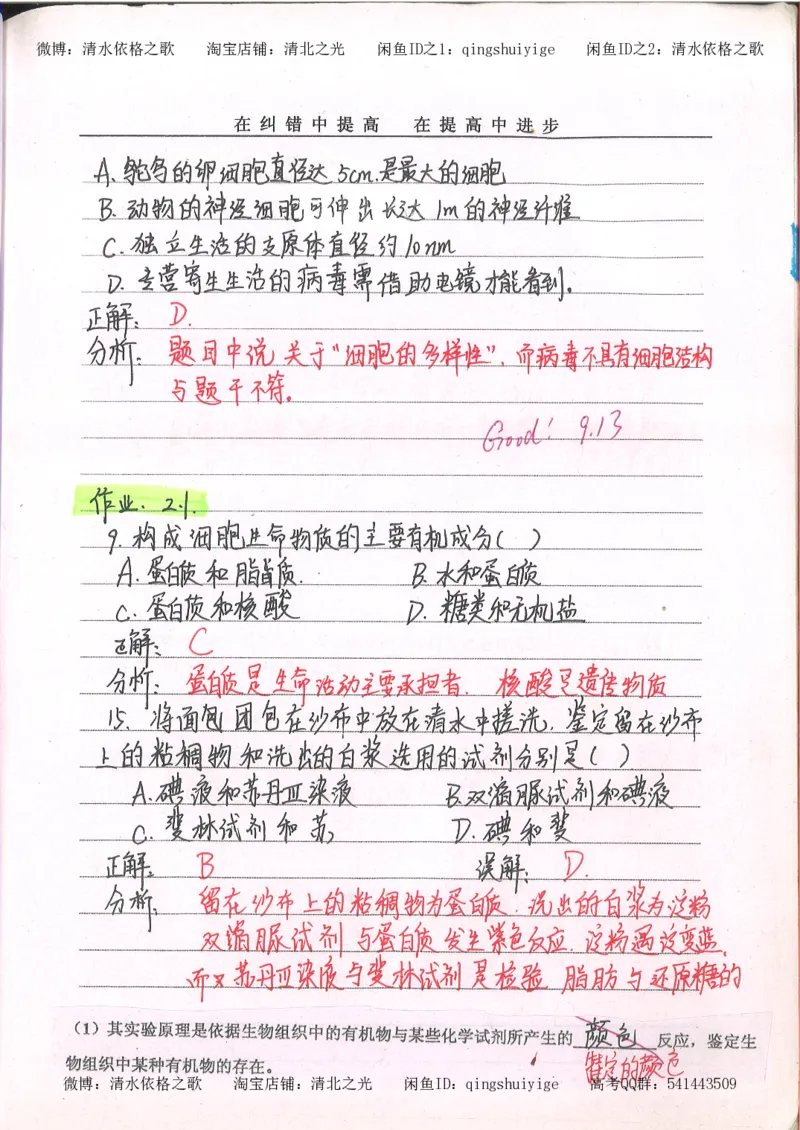 微博：清水依格之歌 淘宝店铺：清北之光 闲鱼ID之1：qingshuiyige 闲鱼ID之2：清水依格之歌
在纠错中提高 在提高中进步
A. 鸵鸟的卵细胞直径达5cm,是最大的细胞
B. 动物的神经细胞可伸出长达1m的神经纤维
C. 独立生活的支原体直径约10nm
D. 专营寄生生活的病毒需借助电镜才能看到。
正解： D.
分析： 题目中说关于“细胞的多样性”，而病毒不具有细胞结构
与题干不符。
Good! 9.13
作业. 2.1.
9. 构成细胞生命物质的主要有机成分( )
A. 蛋白质和脂质. B. 水和蛋白质
C. 蛋白质和核酸 D. 糖类和无机盐
正解： C
分析： 蛋白质是生命活动主要承担者. 核酸是遗传物质
15. 将面包团包在纱布中放在清水中搓洗，鉴定留在纱布
上的粘稠物和洗出的白浆选用的试剂分别是( )
A. 碘液和苏丹Ⅲ染液 B. 双缩脲试剂和碘液
C. 斐林试剂和苏 D. 碘和斐
正解： B 误解： D.
分析： 留在纱布上的粘稠物为蛋白质. 洗出的白浆为淀粉
双缩脲试剂与蛋白质发生紫色反应. 淀粉遇这变蓝.
而苏丹Ⅲ染液与斐林试剂是检验 脂肪与还原糖的
（1）其实验原理是依据生物组织中的有机物与某些化学试剂所产生的 颜色 反应，鉴定生
物组织中某种有机物的存在。 特定的颜色
微博：清水依格之歌 淘宝店铺：清北之光 闲鱼ID：qingshuiyige 高考QQ群：541443509